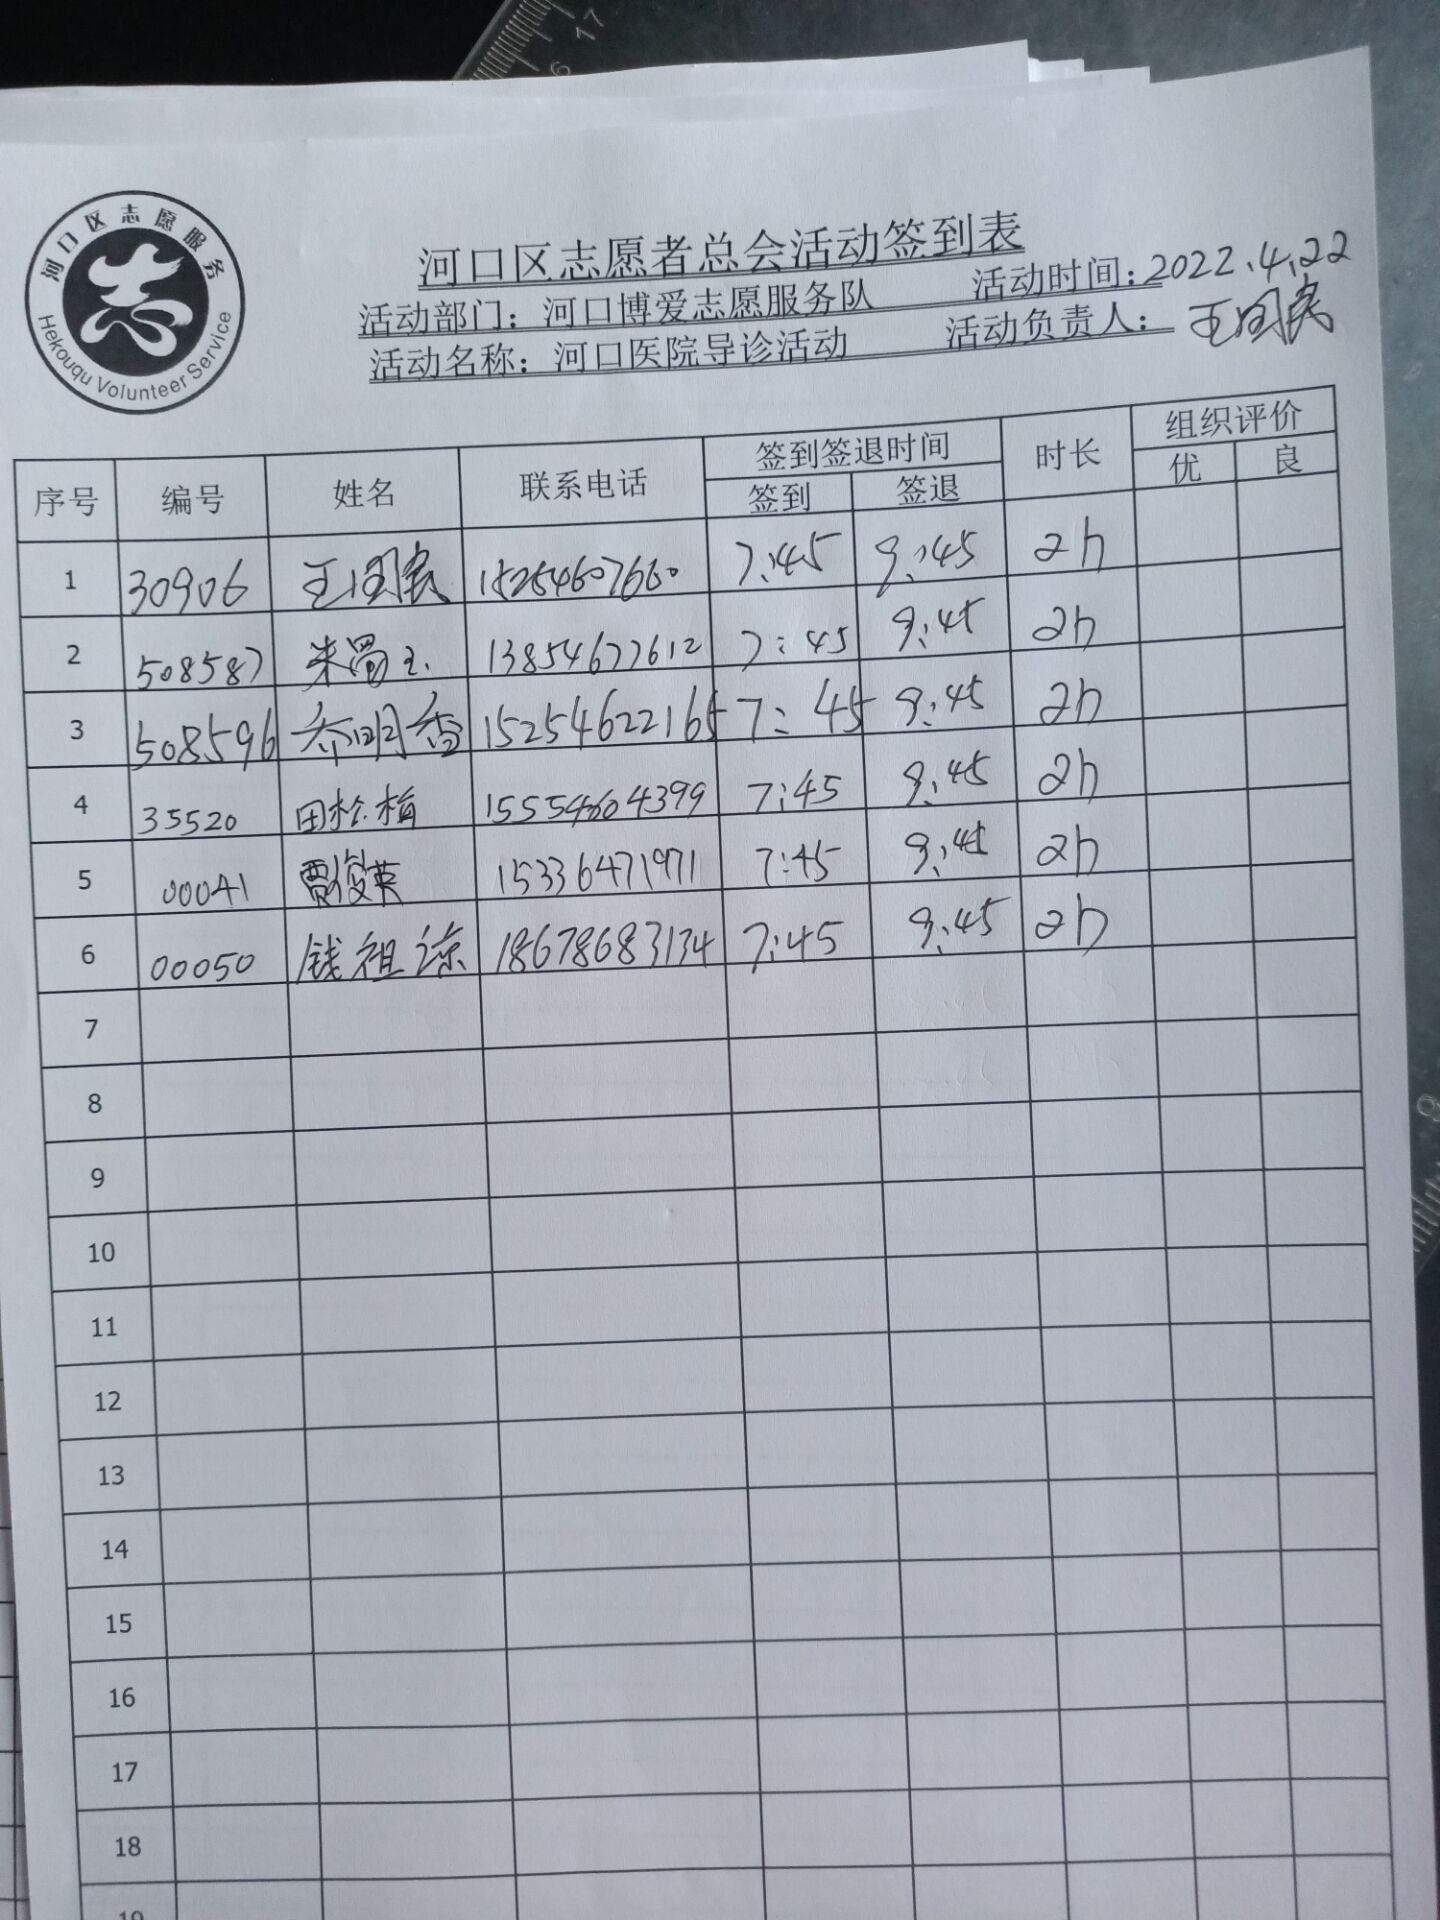 河口区志愿服务
Hekouqu Volunteer Service
河口区志愿者总会活动签到表
活动部门：河口博爱志愿服务队 活动时间：2022.4.22
活动名称：河口医院导诊活动 活动负责人：王国民
序号 编号 姓名 联系电话 签到签退时间 时长 组织评价
签到 签退 优 良
1 30906 王国民 15254607660 7:45 9:45 2h
2 508587 朱蜀玉 13854677612 7:45 9:45 2h
3 508596 乔明香 15254622165 7:45 9:45 2h
4 35520 田桂梅 15554604399 7:45 9:45 2h
5 00041 贾俊英 15336471971 7:45 9:45 2h
6 00050 钱祖 18678683134 7:45 9:45 2h
7
8
9
10
11
12
13
14
15
16
17
18
19